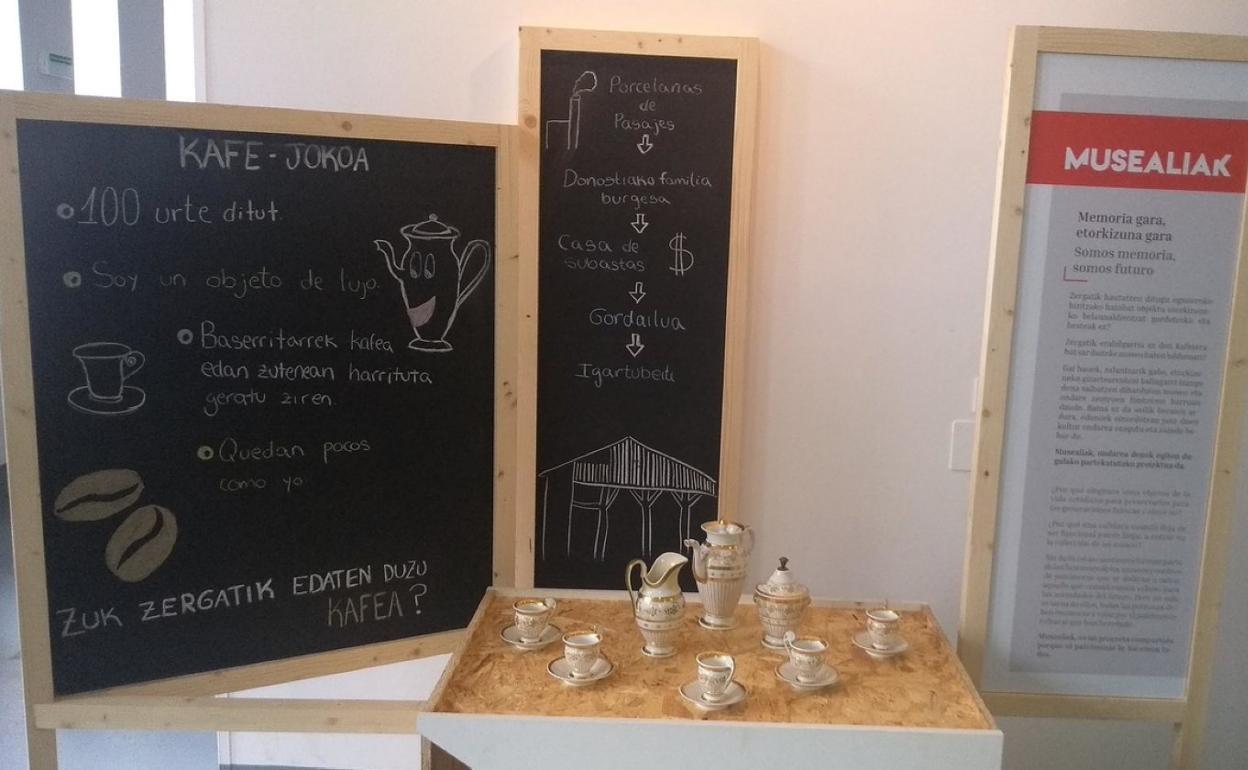 KAFE - JOKOA
100 urte ditut.
Soy un objeto de lujo.
Baserritarrek kafea
edan zutenean harrituta
geratu ziren.
Quedan pocos
como yo
ZUK ZERGATIK EDATEN DUZU
KAFEA?
Porcelanas
de
Pasajes
Donostiako familia
burgesa
Casa de
subastas $
Gordailua
Igartubeiti
MUSEALIAK
Memoria gara,
etorkizuna gara
Somos memoria,
somos futuro
Zergatik hautatzen ditugu eguneroko
bizitzako hainbat objektu etorkizune-
ko belaunaldientzat gordetzeko eta
besteak ez?
Musealiak, ondarea denok egiten du-
gulako partekatutako proiektua da.
¿Por qué elegimos unos objetos de la
vida cotidiana para preservarlos para
las generaciones futuras y otros no?
¿Por qué una cafetera cuando deja de
ser funcional puede llegar a entrar en
la colección de un museo?
Musealiak, es un proyecto compartido
porque el patrimonio lo hacemos to-
dos.